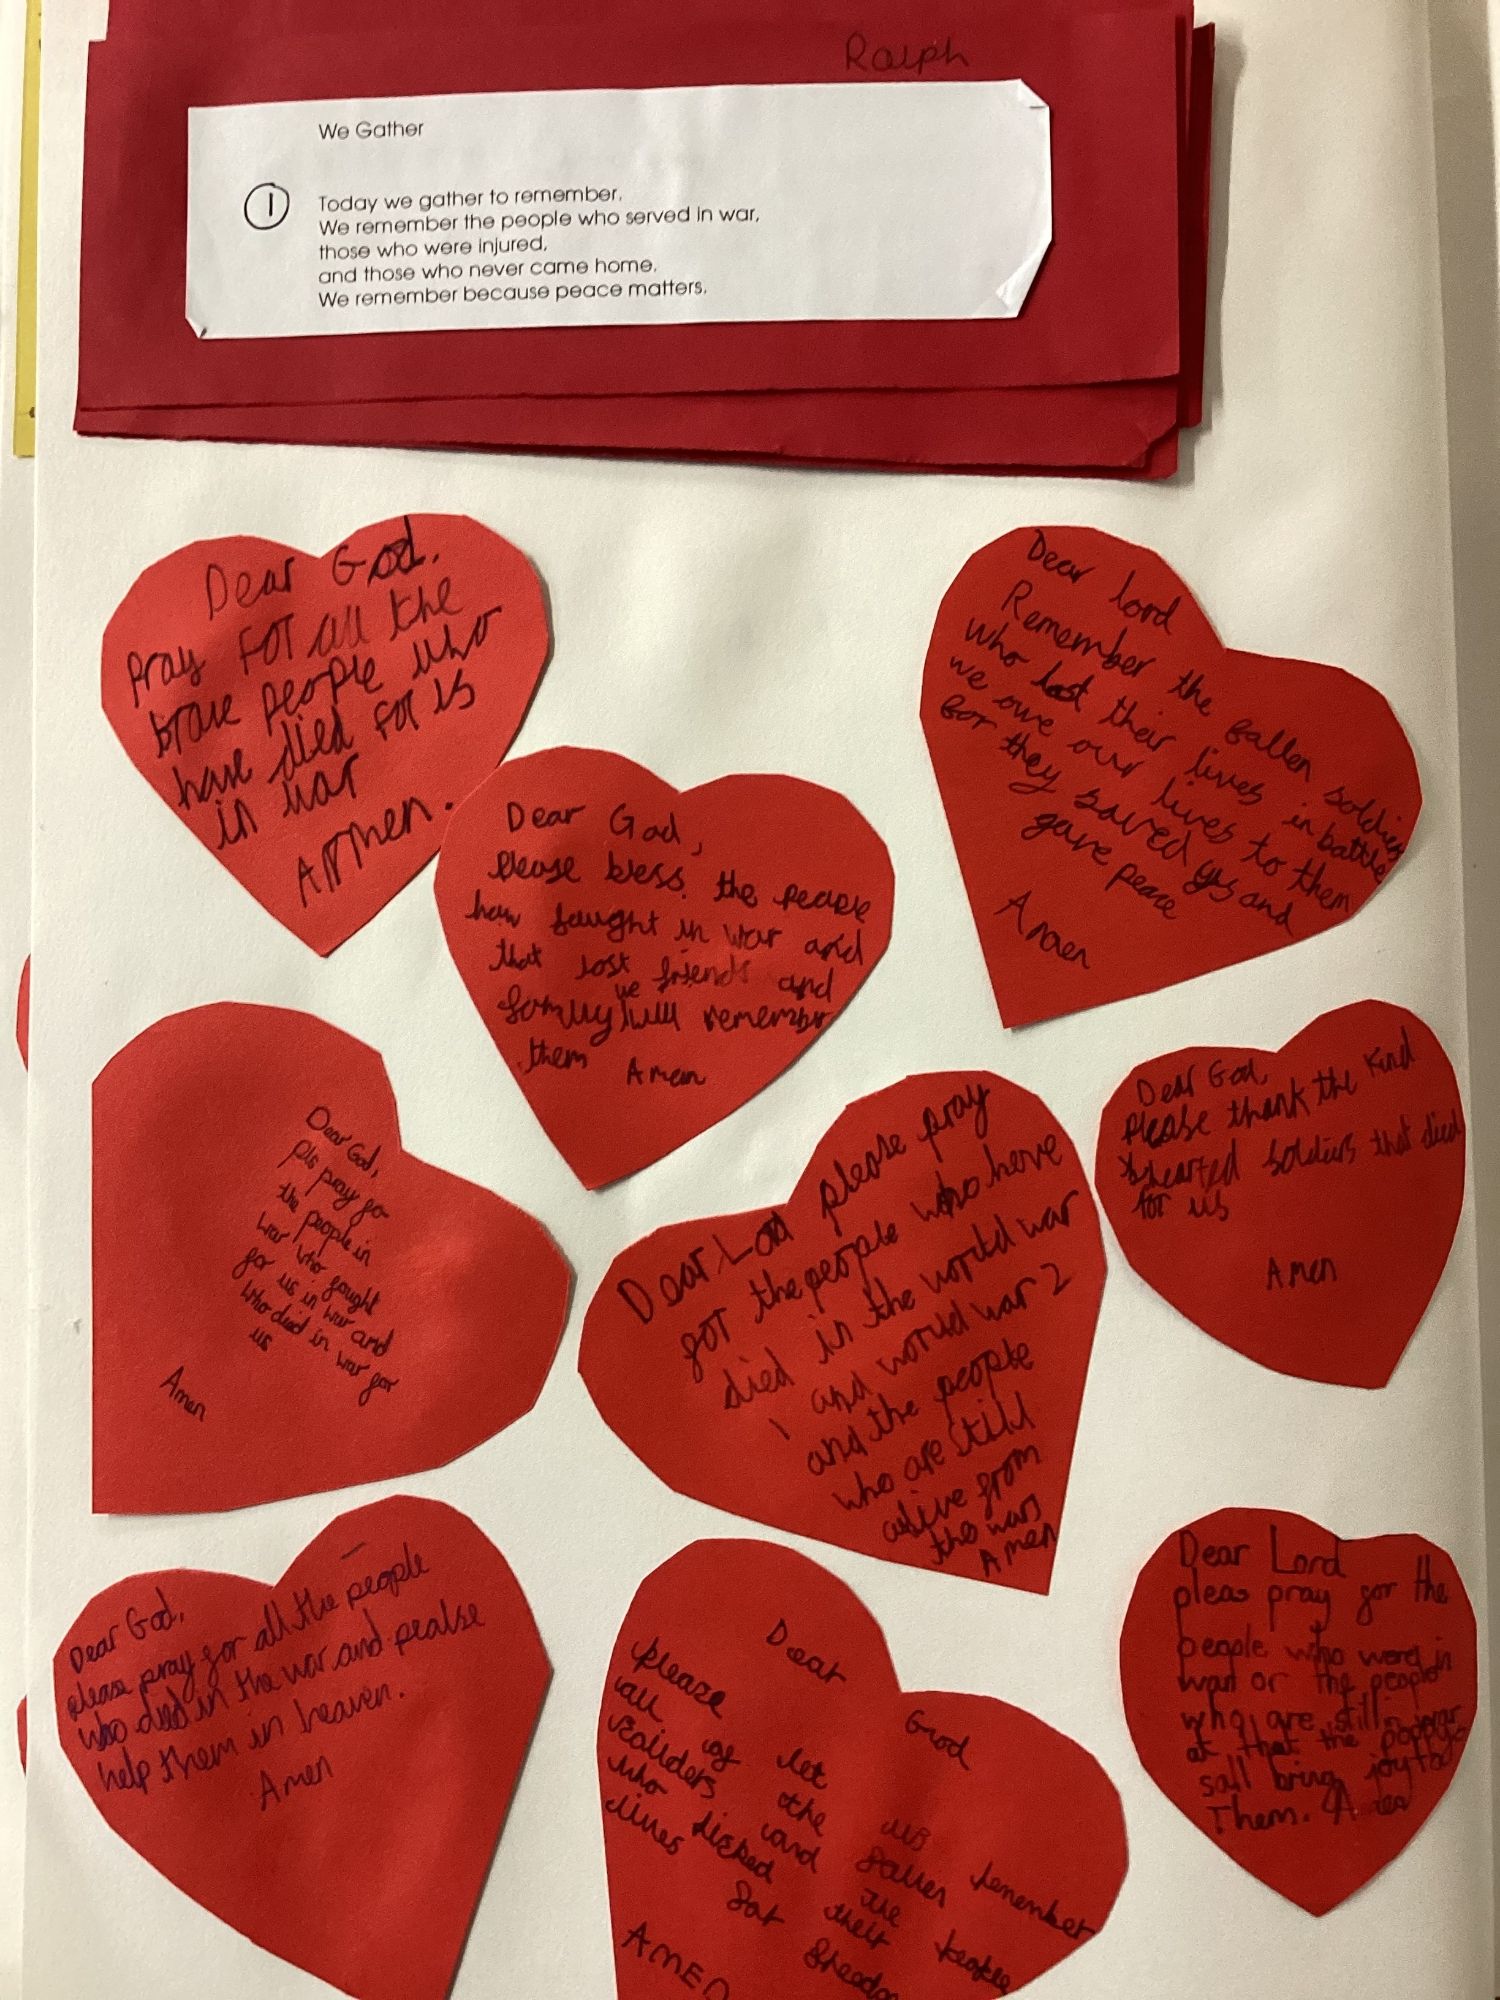 Ralph
We Gather
1
Today we gather to remember.
We remember the people who served in war,
those who were injured,
and those who never came home.
We remember because peace matters.
Dear God.
Pray For all the
brave people who
have died For us
in war
Dear Lord
Remember the fallen soldiers
who lost their lives in battle
we owe our lives to them
for they saved and
gave peace
Amen
Dear God,
please bless the people
fought in war and
that lost friends and
family we will remember
them Amen
Dear God,
pls pray for
the people in
war who fought
for us in war and
who died in war for
us
Amen
Dear please pray
for the people who have
died in the world war
1 and world war 2
and the people
who are still
alive from
the wars
Amen
Dear God,
Please thank the kind
hearted soldiers that died
for us
Amen
Dear God,
please pray for all the people
who died in the war and
help them in heaven.
Amen
Dear God
please let us remember
all of the fallen
and the people
who their
lives for
Dear Lord
pleas pray for the
people who in
war or the people
who are still in war
at that the
bring joy to
Them.